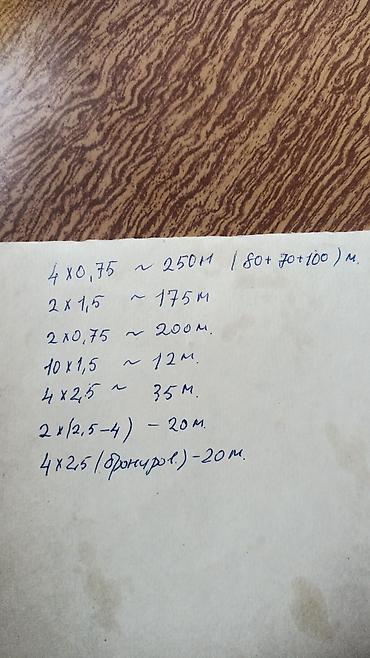 4 x 0,75 ~ 250 м (80+70+100) м.
2 x 1,5 ~ 175 м
2 x 0,75 ~ 200 м.
10 x 1,5 ~ 12 м.
4 x 2,5 ~ 35 м.
2 x (2,5-4) - 20 м.
4 x 2,5 (брониров.) - 20 м.